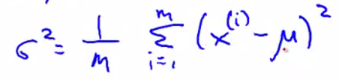 σ² = 1/m Σ_{i=1}^{m} (x^{(i)} - μ)²